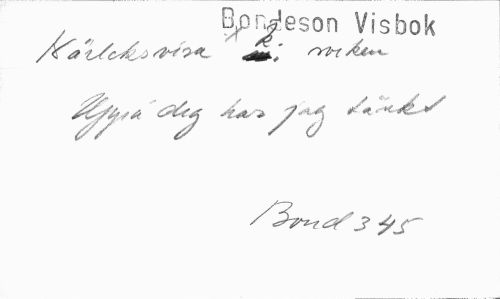 Bondeson Visbok
Kärleksvisa k: viken
Uppå deg har jag tänkt
Bond 345